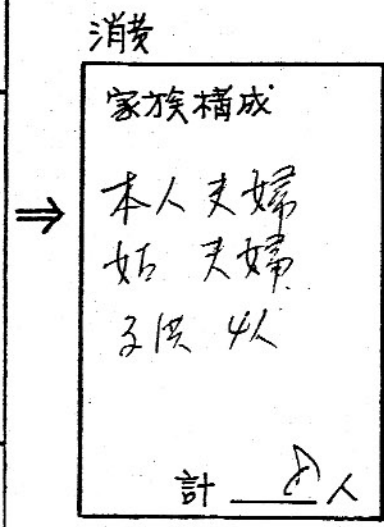 消費
⇒
家族構成
本人夫婦
姑 夫婦
子供 4人
計 8人